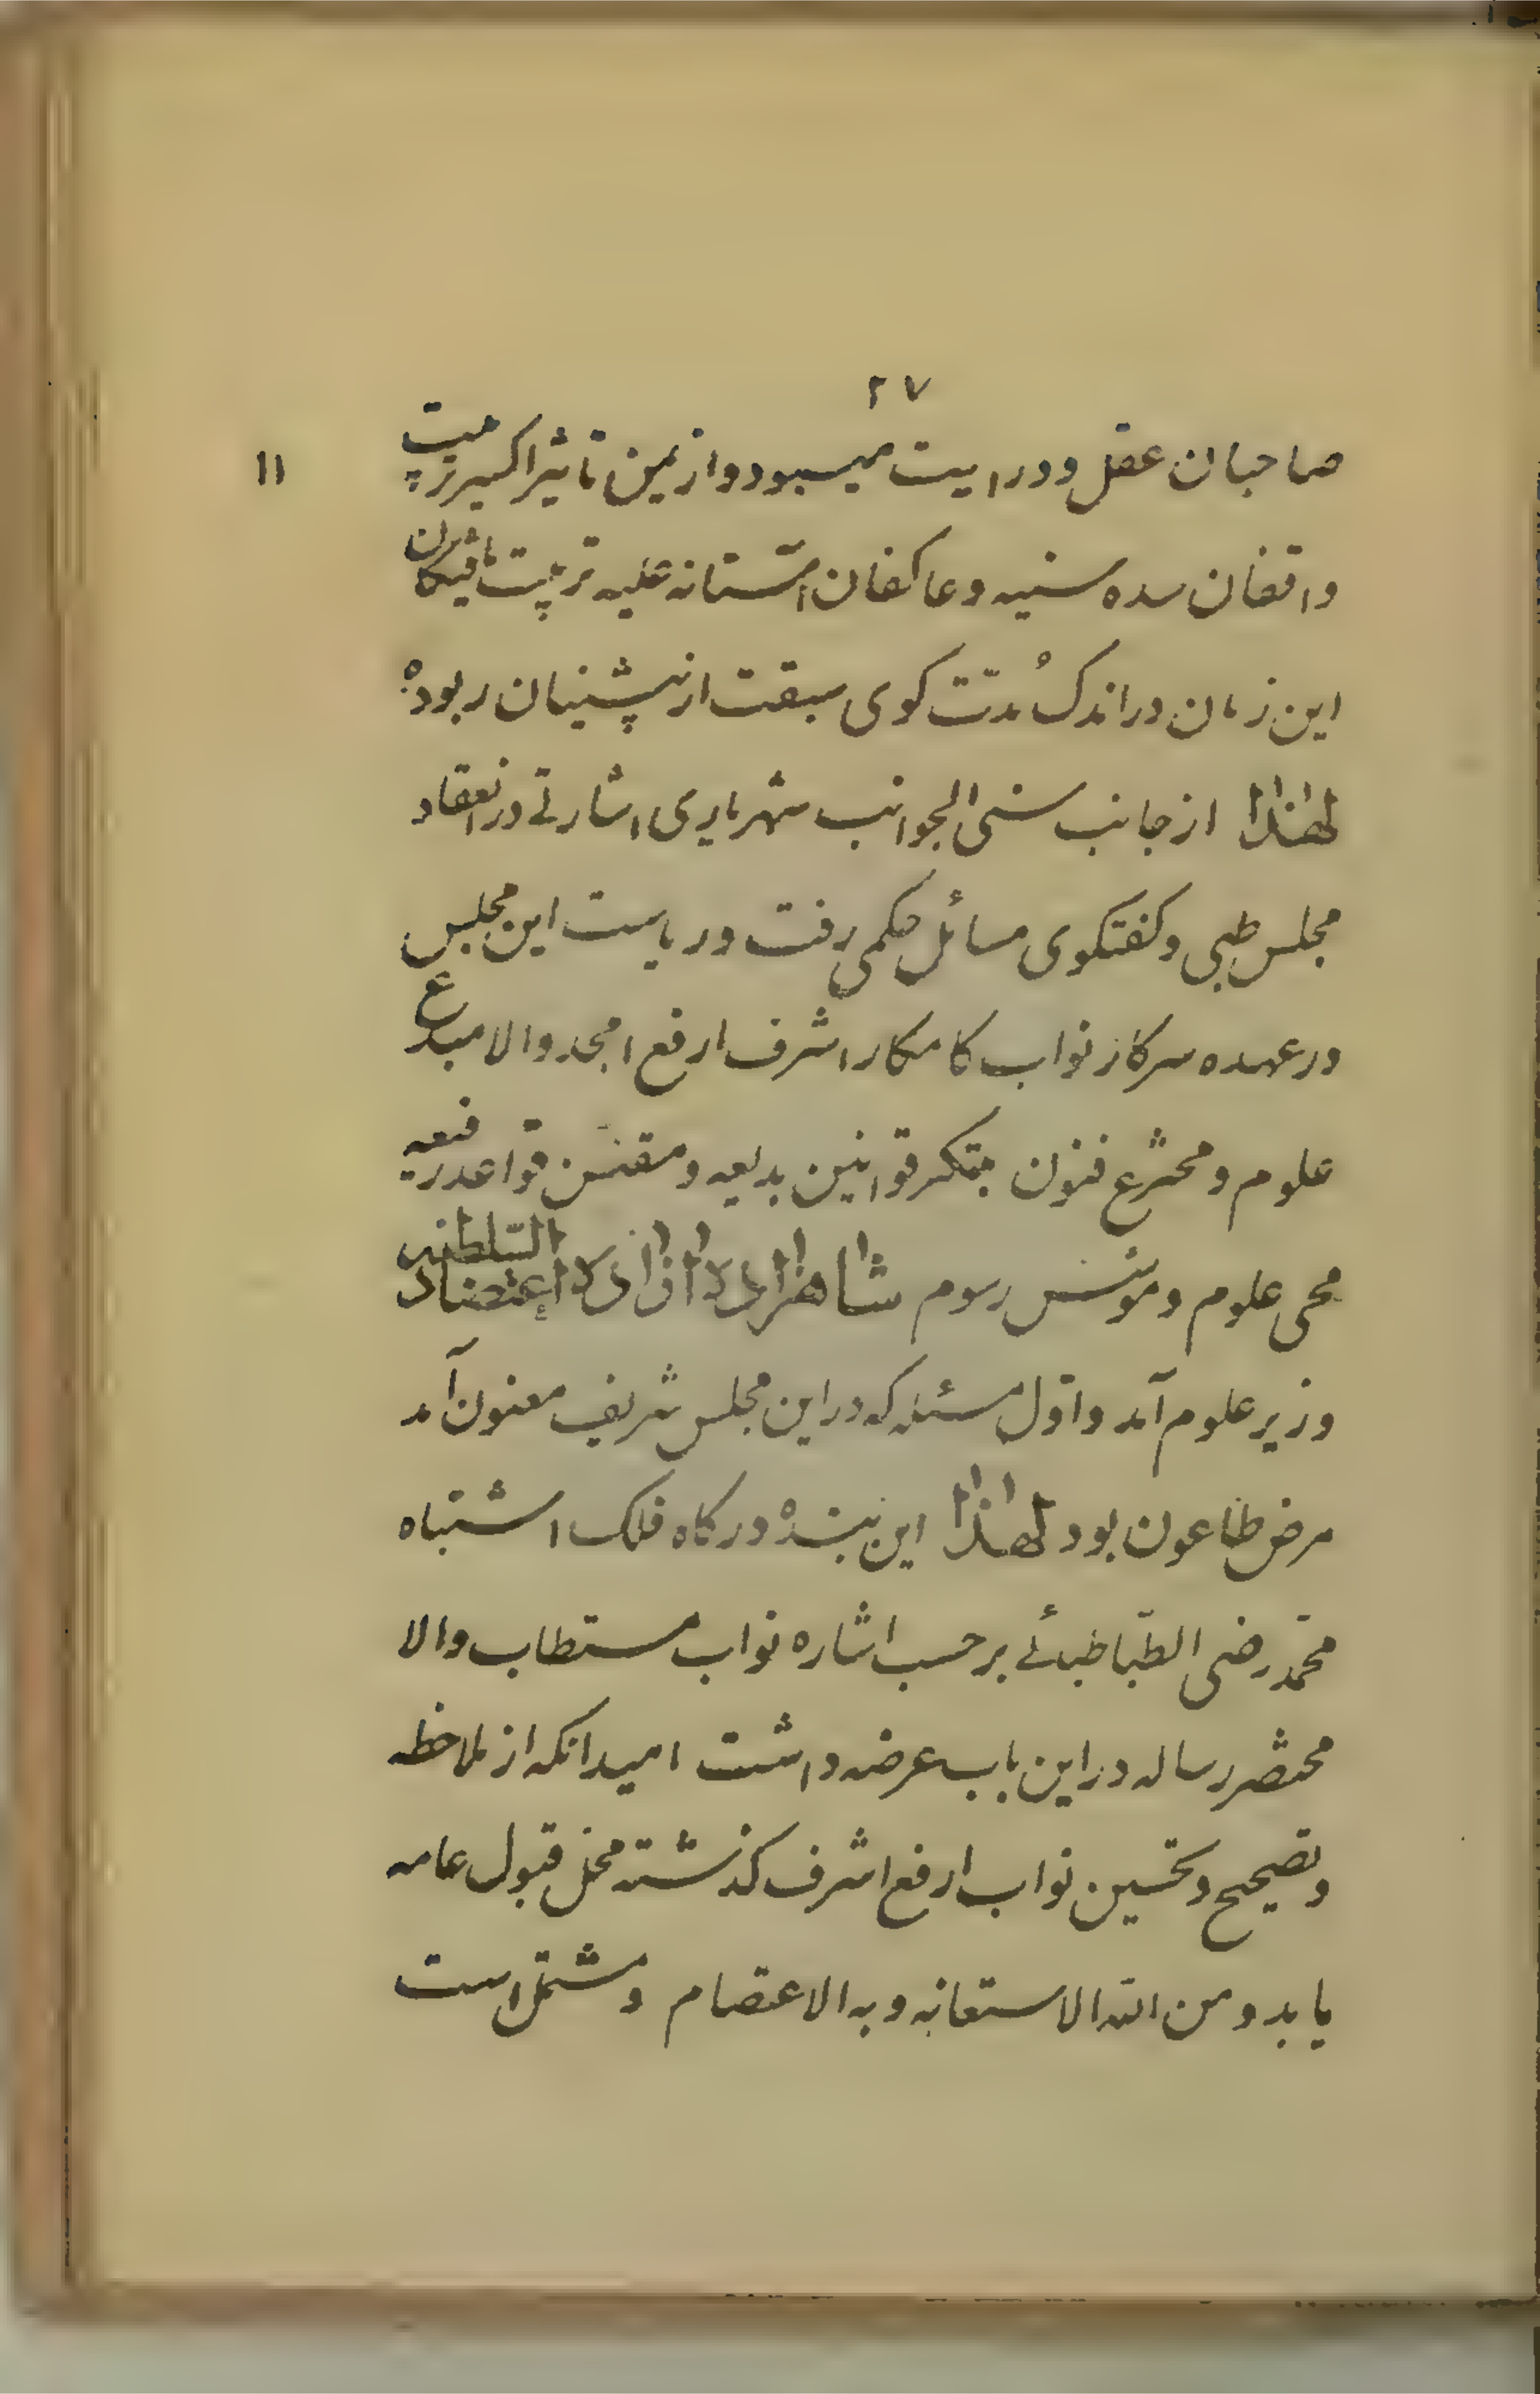 ۲۷
۱۱
صاحبان عقل و درایت میسبود و از یمن تاثیر اکسیر تربیت
واقفان سده سنیه و عاکفان آستانه علیه تربیت
این زمان در اندک مدّت کوی سبقت از پیشینیان ربوده
لهذا از جانب سنی الجوانب شهریاری اشارتی در انعقاد
مجلس طبی و کفتکوی مسائل حکمی رفت و ریاست این مجلس
در عهده سرکار نواب کامکار اشرف ارفع امجد والا مبدع
علوم و مخترع فنون مبتکر قوانین بدیعه و مقنّن قواعد رفیعه
محی علوم و موسّس رسوم شاهزاده ازاده اعتضاد السّلطنه
وزیر علوم آمد و اوّل مسئله که در این مجلس شریف معنون آمد
مرض طاعون بود لهذا این بنده درکاه فلک اشتباه
محمّد رضی الطّباطبائے بر حسب اشاره نواب مستطاب والا
مختصر رساله در این باب عرضه داشت امید انکه از ملاحظه
و تصحیح و تحسین نواب ارفع اشرف کذشته محل قبول عامه
یابد و من الله الاستعانه و به الاعتصام و مشتمل است